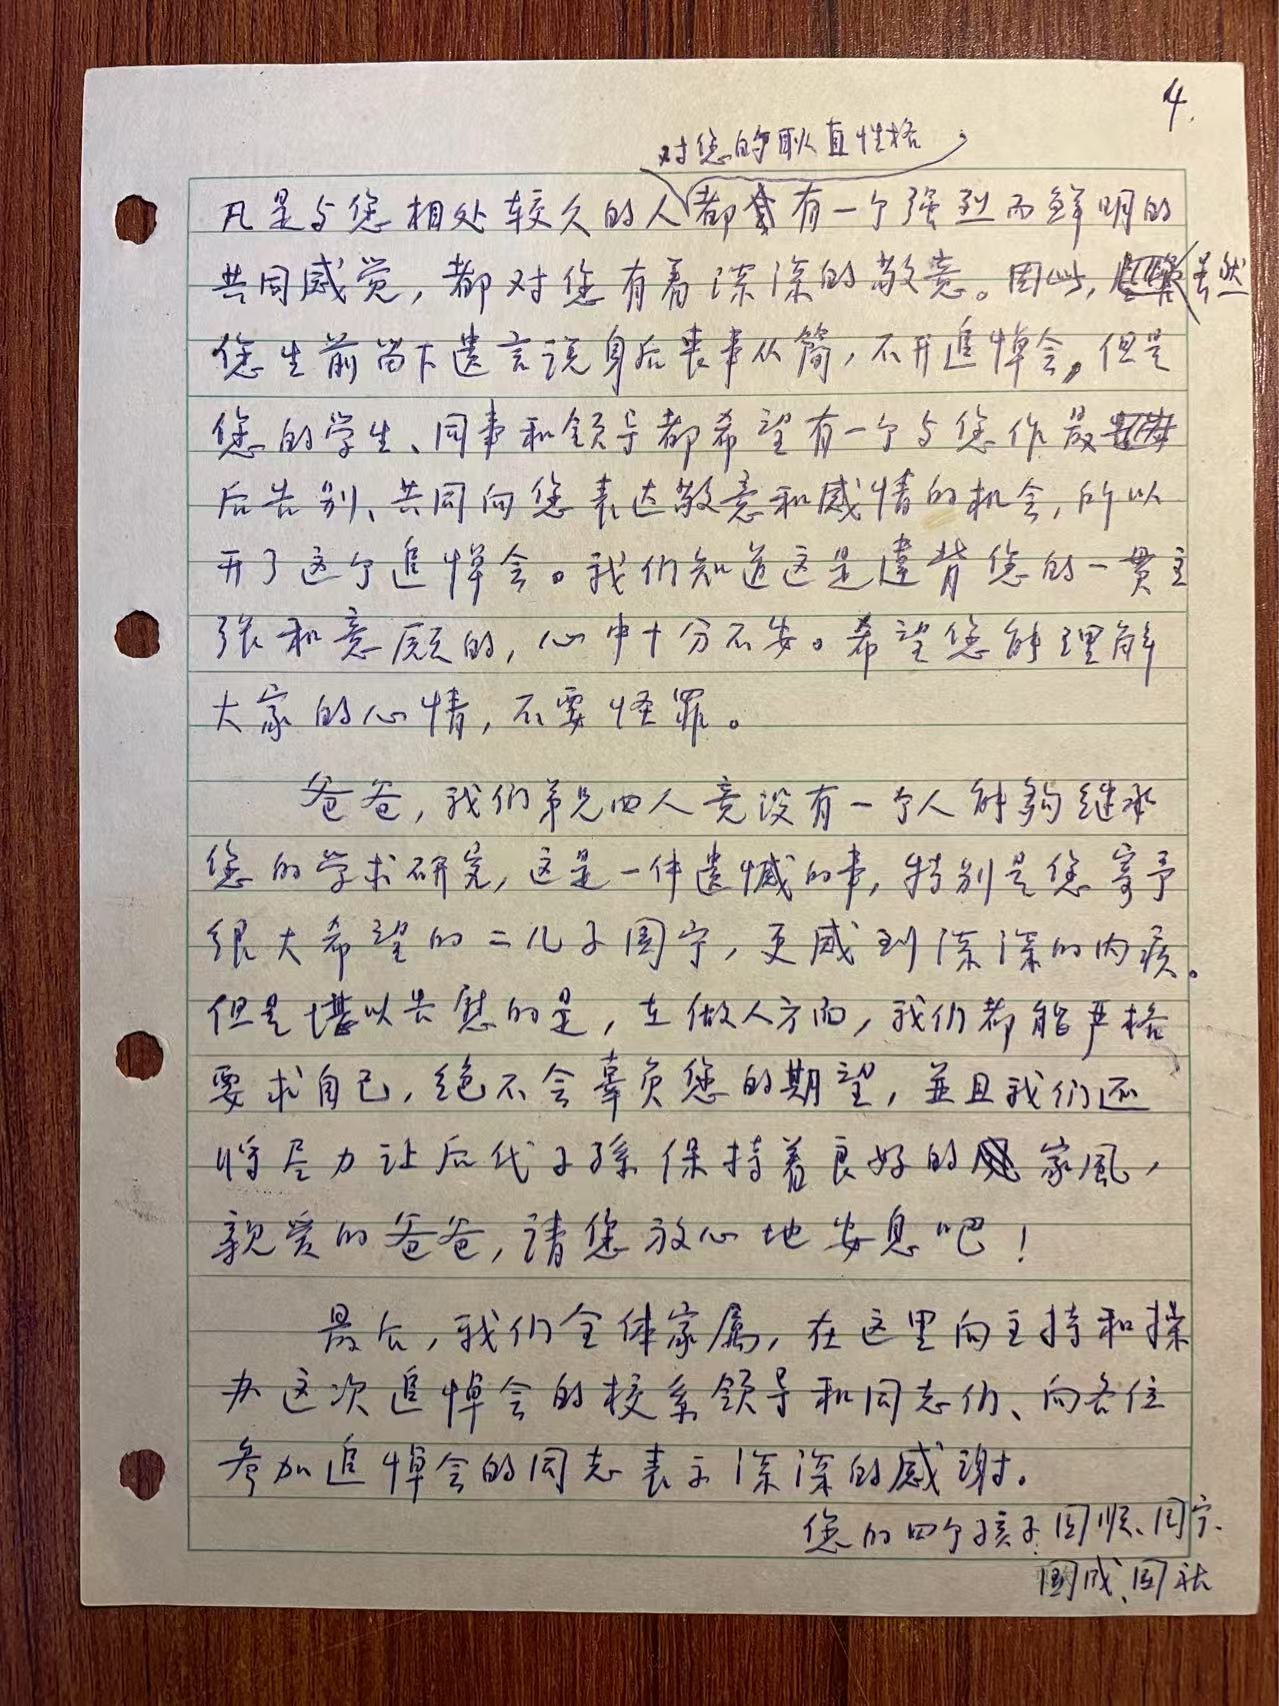 4.
对您的耿直性格
凡是与您相处较久的人都有一个强烈而鲜明的
共同感觉，都对您有着深深的敬意。因此，虽然
您生前留下遗言说身后丧事从简，不开追悼会，但是
您的学生、同事和领导都希望有一个与您作最
后告别、共同向您表达敬意和感情的机会，所以
开了这个追悼会。我们知道这是違背您的一贯主
张和意愿的，心中十分不安。希望您能理解
大家的心情，不要怪罪。
爸爸，我们弟兄四人竟没有一个人能夠继承
您的学术研究，这是一件遗憾的事，特别是您寄予
很大希望的二儿子国宁，更感到深深的内疚。
但是堪以告慰的是，在做人方面，我们都能严格
要求自己，绝不会辜负您的期望，並且我们还
将尽力让后代子孫保持着良好的家風，
親爱的爸爸，请您放心地安息吧！
最后，我们全体家属，在这里向主持和操
办这次追悼会的校系领导和同志们、向各位
参加追悼会的同志表示深深的感谢。
您的四个孩子：国顺、国宁、
国成、国社